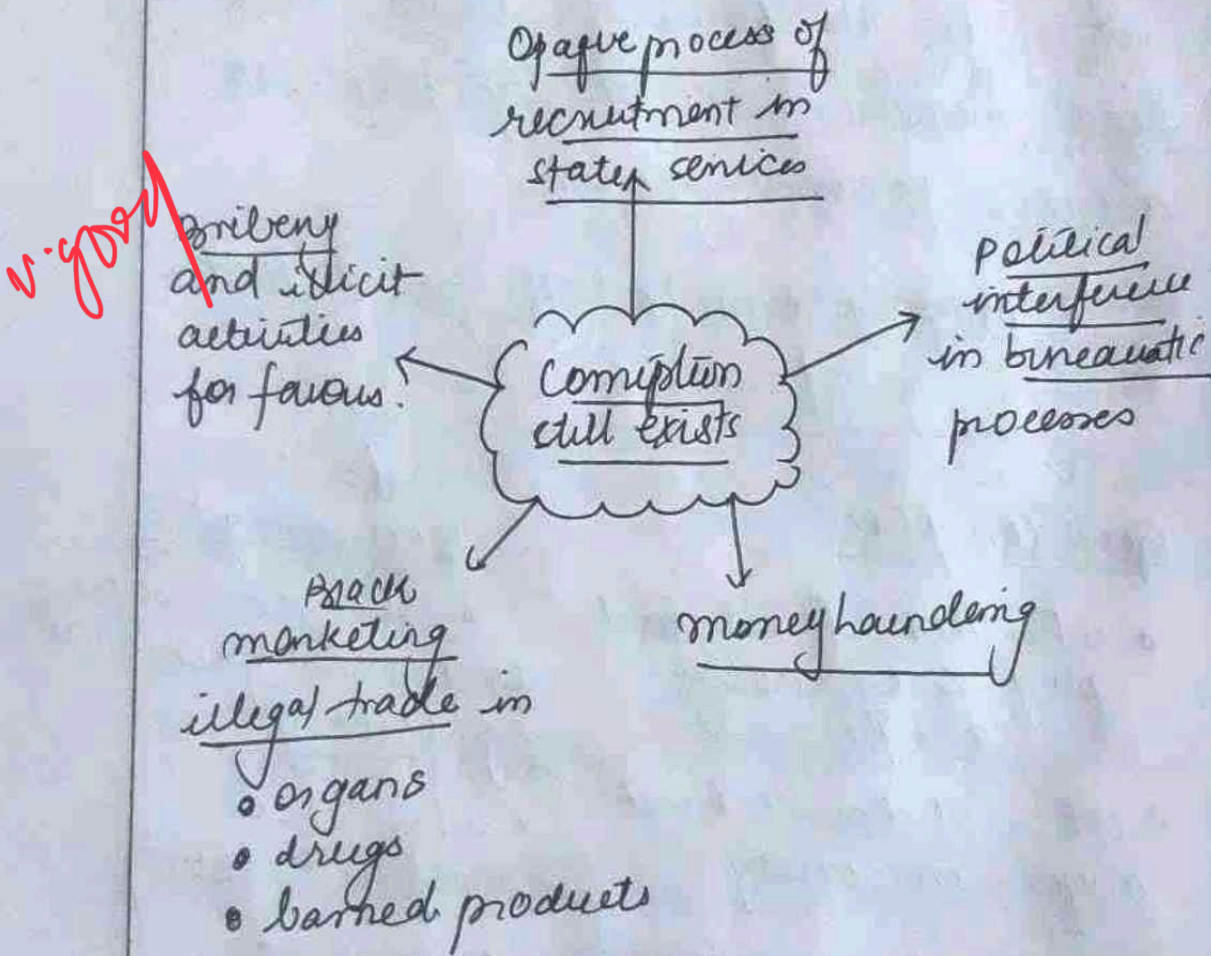 Opaque process of
recruitment in
state services
v.good
Bribery
and illicit
activities
for favours.
Corruption
still exists
Political
interference
in bureaucratic
processes
Black
marketing
illegal trade in
• organs
• drugs
• banned products
money laundering